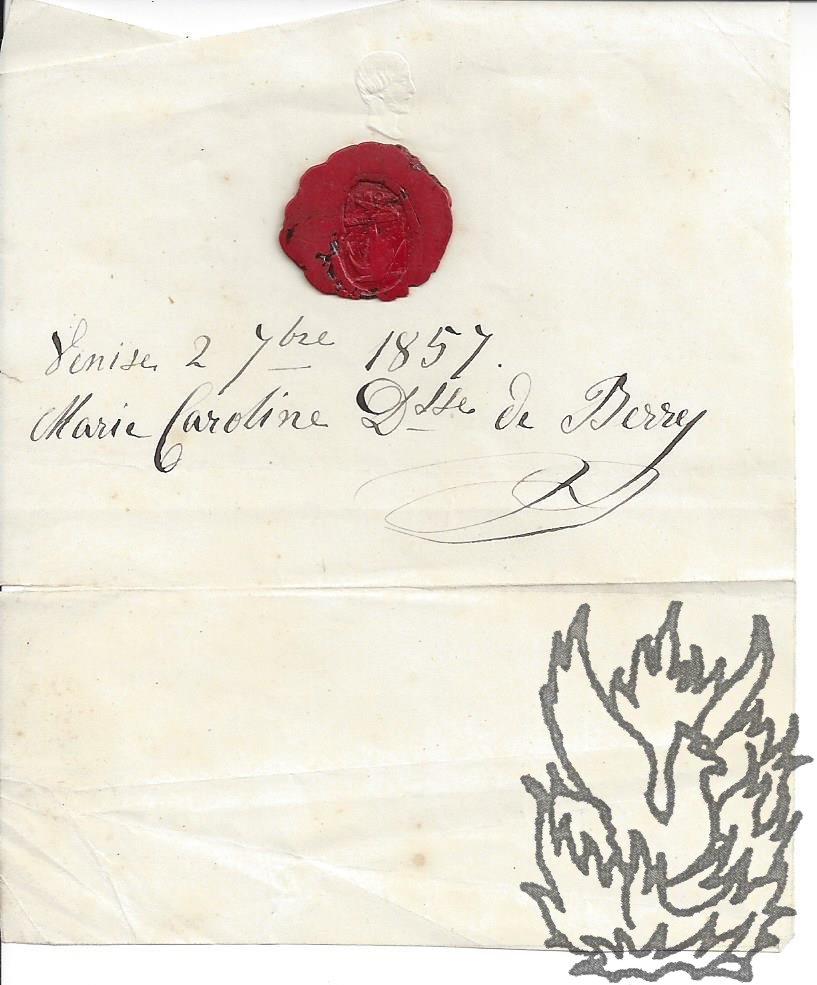 Venise 2 7bre 1857.
Marie Caroline Dsse de Berry